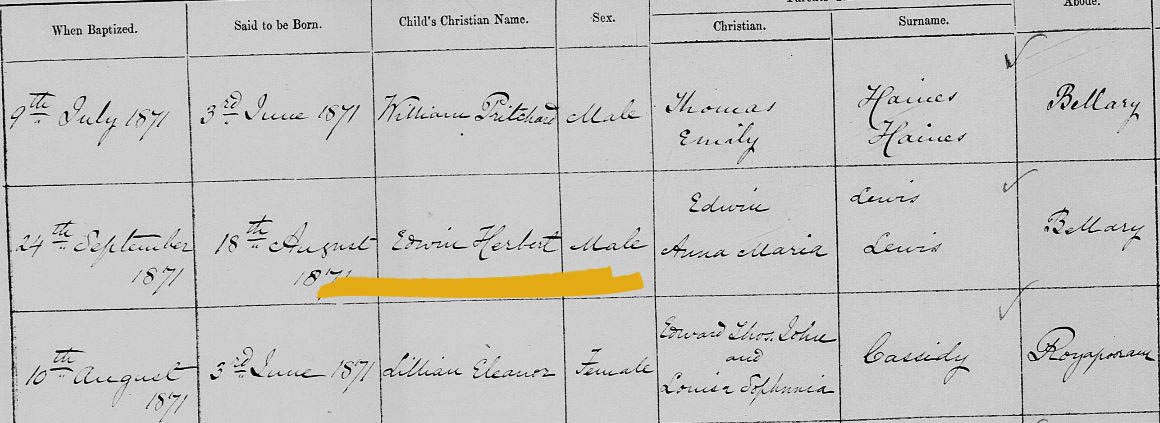 When Baptized. Said to be Born. Child's Christian Name. Sex. Christian. Surname. Abode.
9th July 1871 3rd June 1871 William Pritchard Male Thomas Haines Bellary
Emily Haines
24th September 18th August Edwin Herbert Male Edwin Lewis Bellary
1871 1871 Anna Maria Lewis
10th August 3rd June 1871 Lillian Eleanor Female Edward Thos. John Cassidy Royapooram
1871 and
Louisa Sophunia